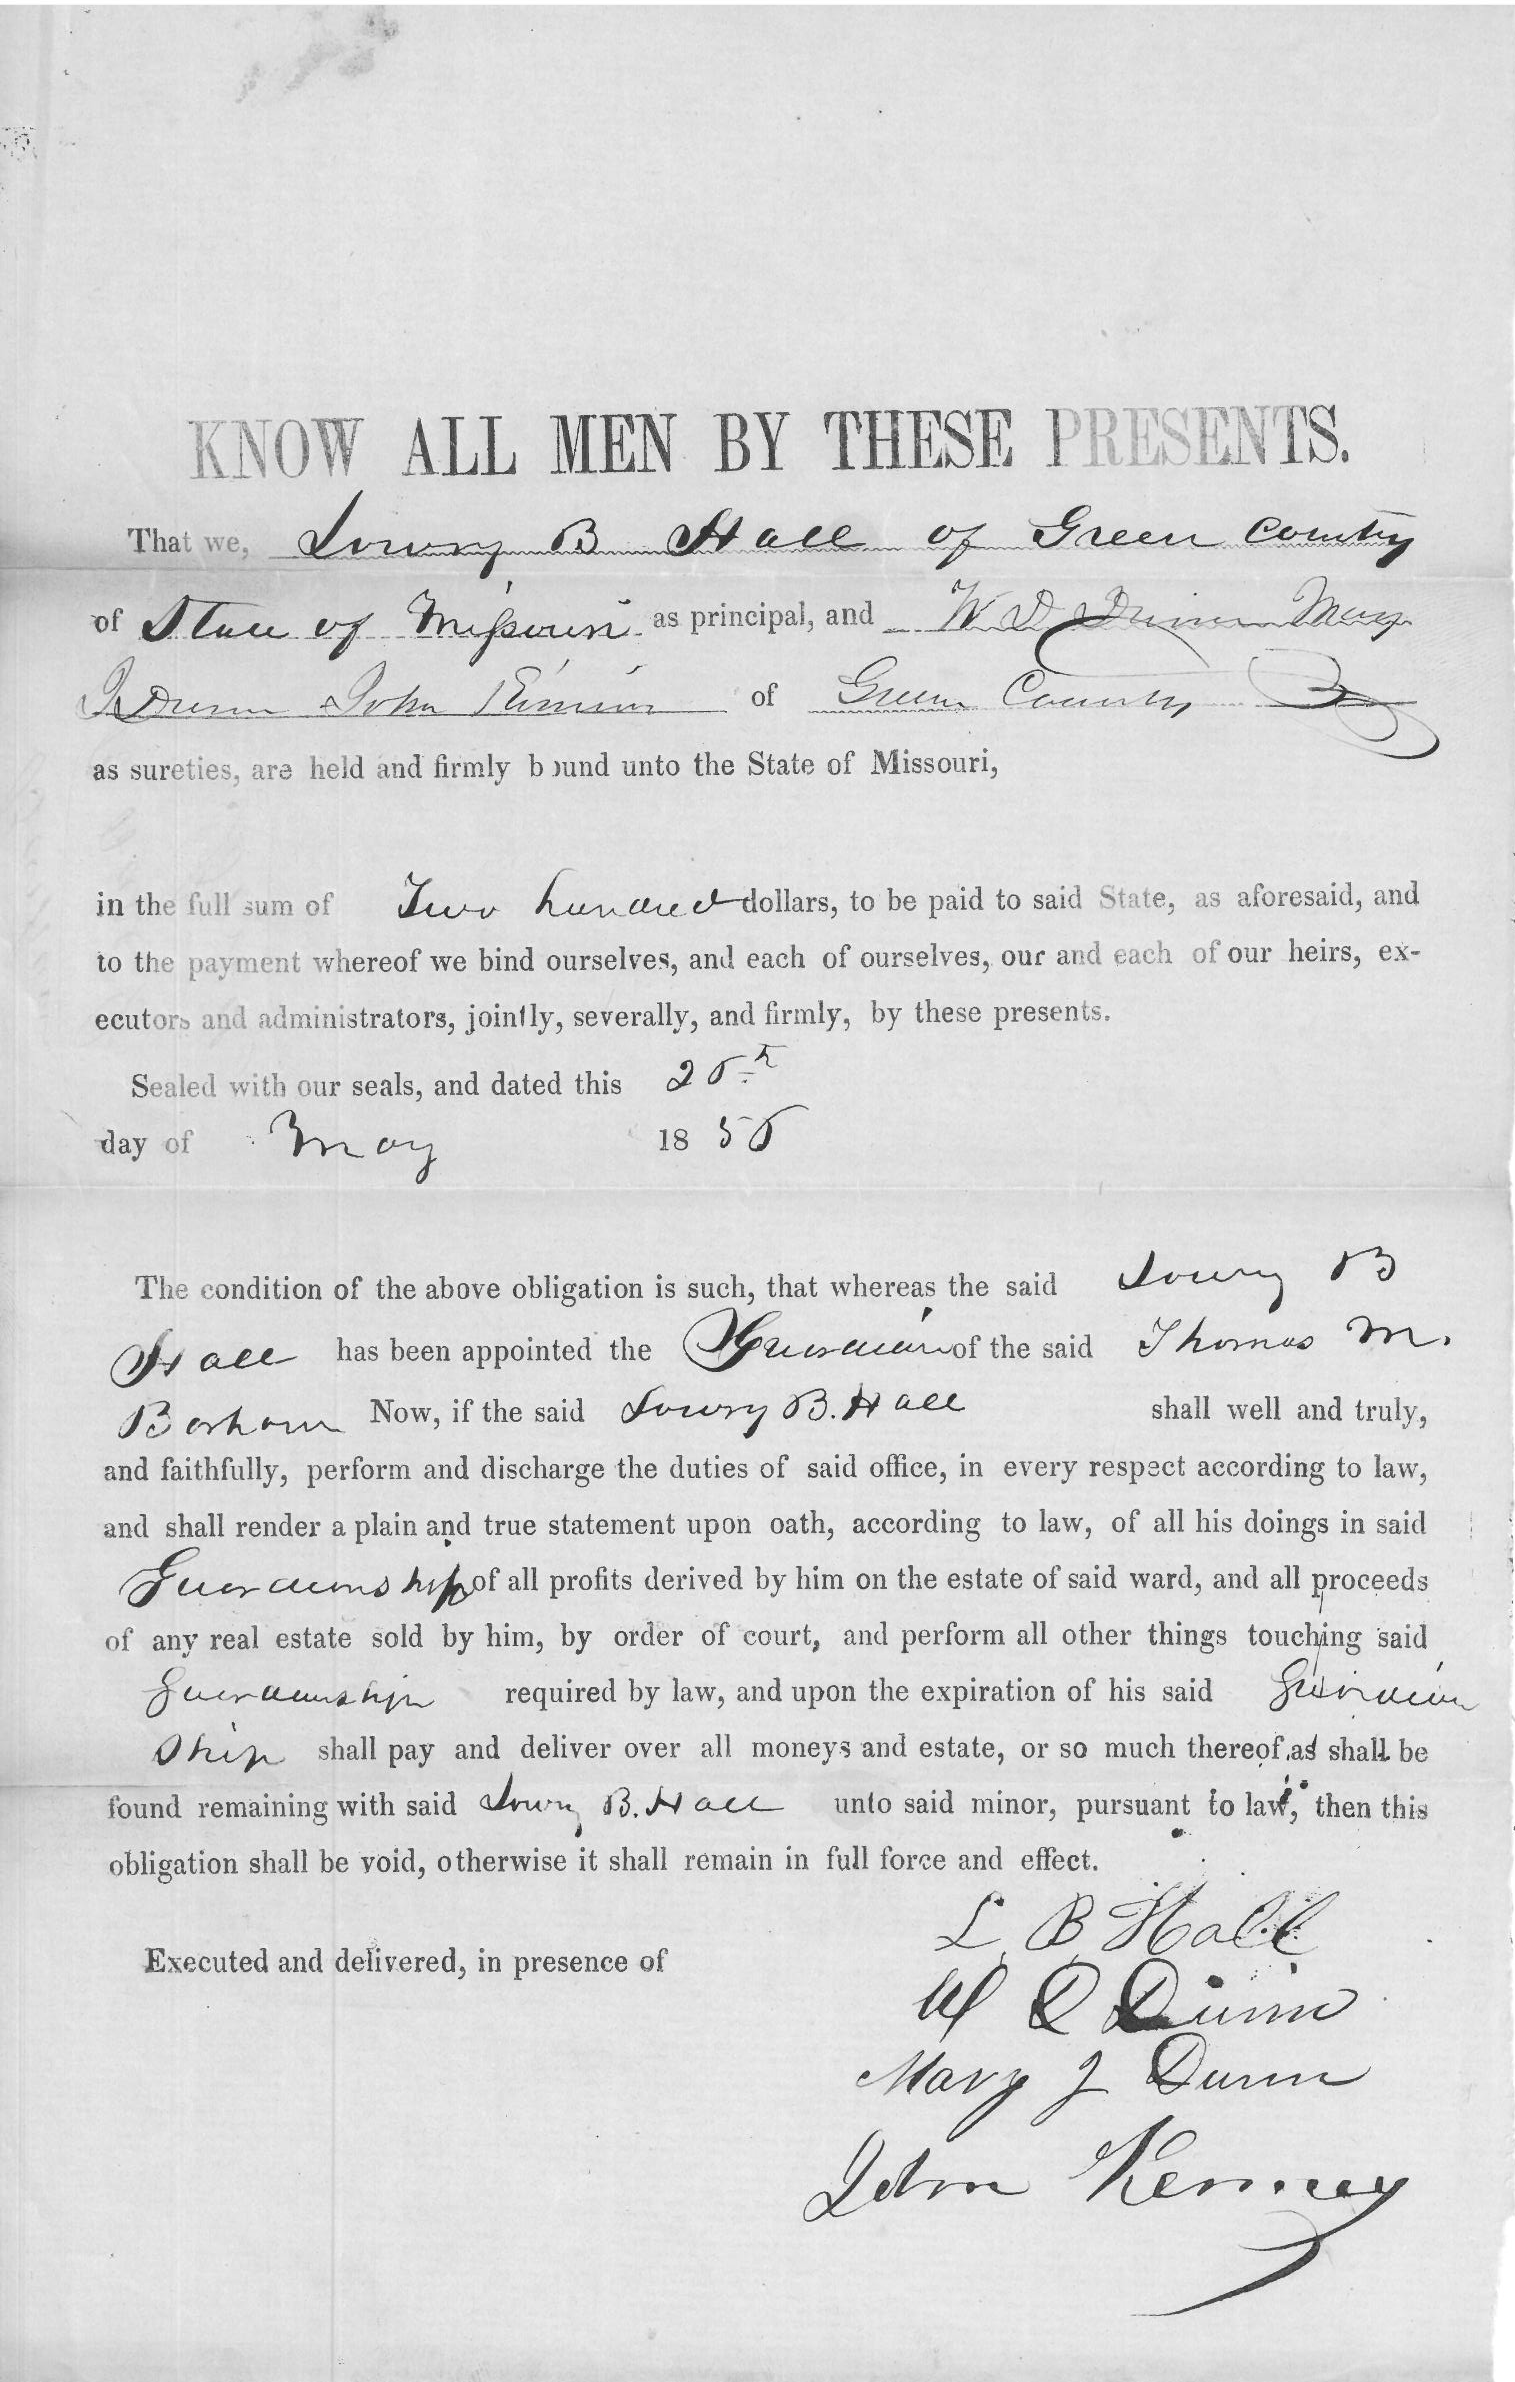 KNOW ALL MEN BY THESE PRESENTS.
That we, Lowry B Hall of Green County
of State of Missouri as principal, and W D Dunn Mary
J Dunn John of Green County
as sureties, are held and firmly bound unto the State of Missouri,
in the full sum of Two hundred dollars, to be paid to said State, as aforesaid, and
to the payment whereof we bind ourselves, and each of ourselves, our and each of our heirs, ex-
ecutors and administrators, jointly, severally, and firmly, by these presents.
Sealed with our seals, and dated this 25th
day of May 1855
The condition of the above obligation is such, that whereas the said Lowry B
Hall has been appointed the Guardian of the said Thomas M.
Now, if the said Lowry B. Hall shall well and truly,
and faithfully, perform and discharge the duties of said office, in every respect according to law,
and shall render a plain and true statement upon oath, according to law, of all his doings in said
Guardianship of all profits derived by him on the estate of said ward, and all proceeds
of any real estate sold by him, by order of court, and perform all other things touching said
Guardianship required by law, and upon the expiration of his said Guardian
Ship shall pay and deliver over all moneys and estate, or so much thereof as shall be
found remaining with said Lowry B. Hall unto said minor, pursuant to law, then this
obligation shall be void, otherwise it shall remain in full force and effect.
L. B. Hall
Executed and delivered, in presence of
W D Dunn
Mary J Dunn
John Kenney